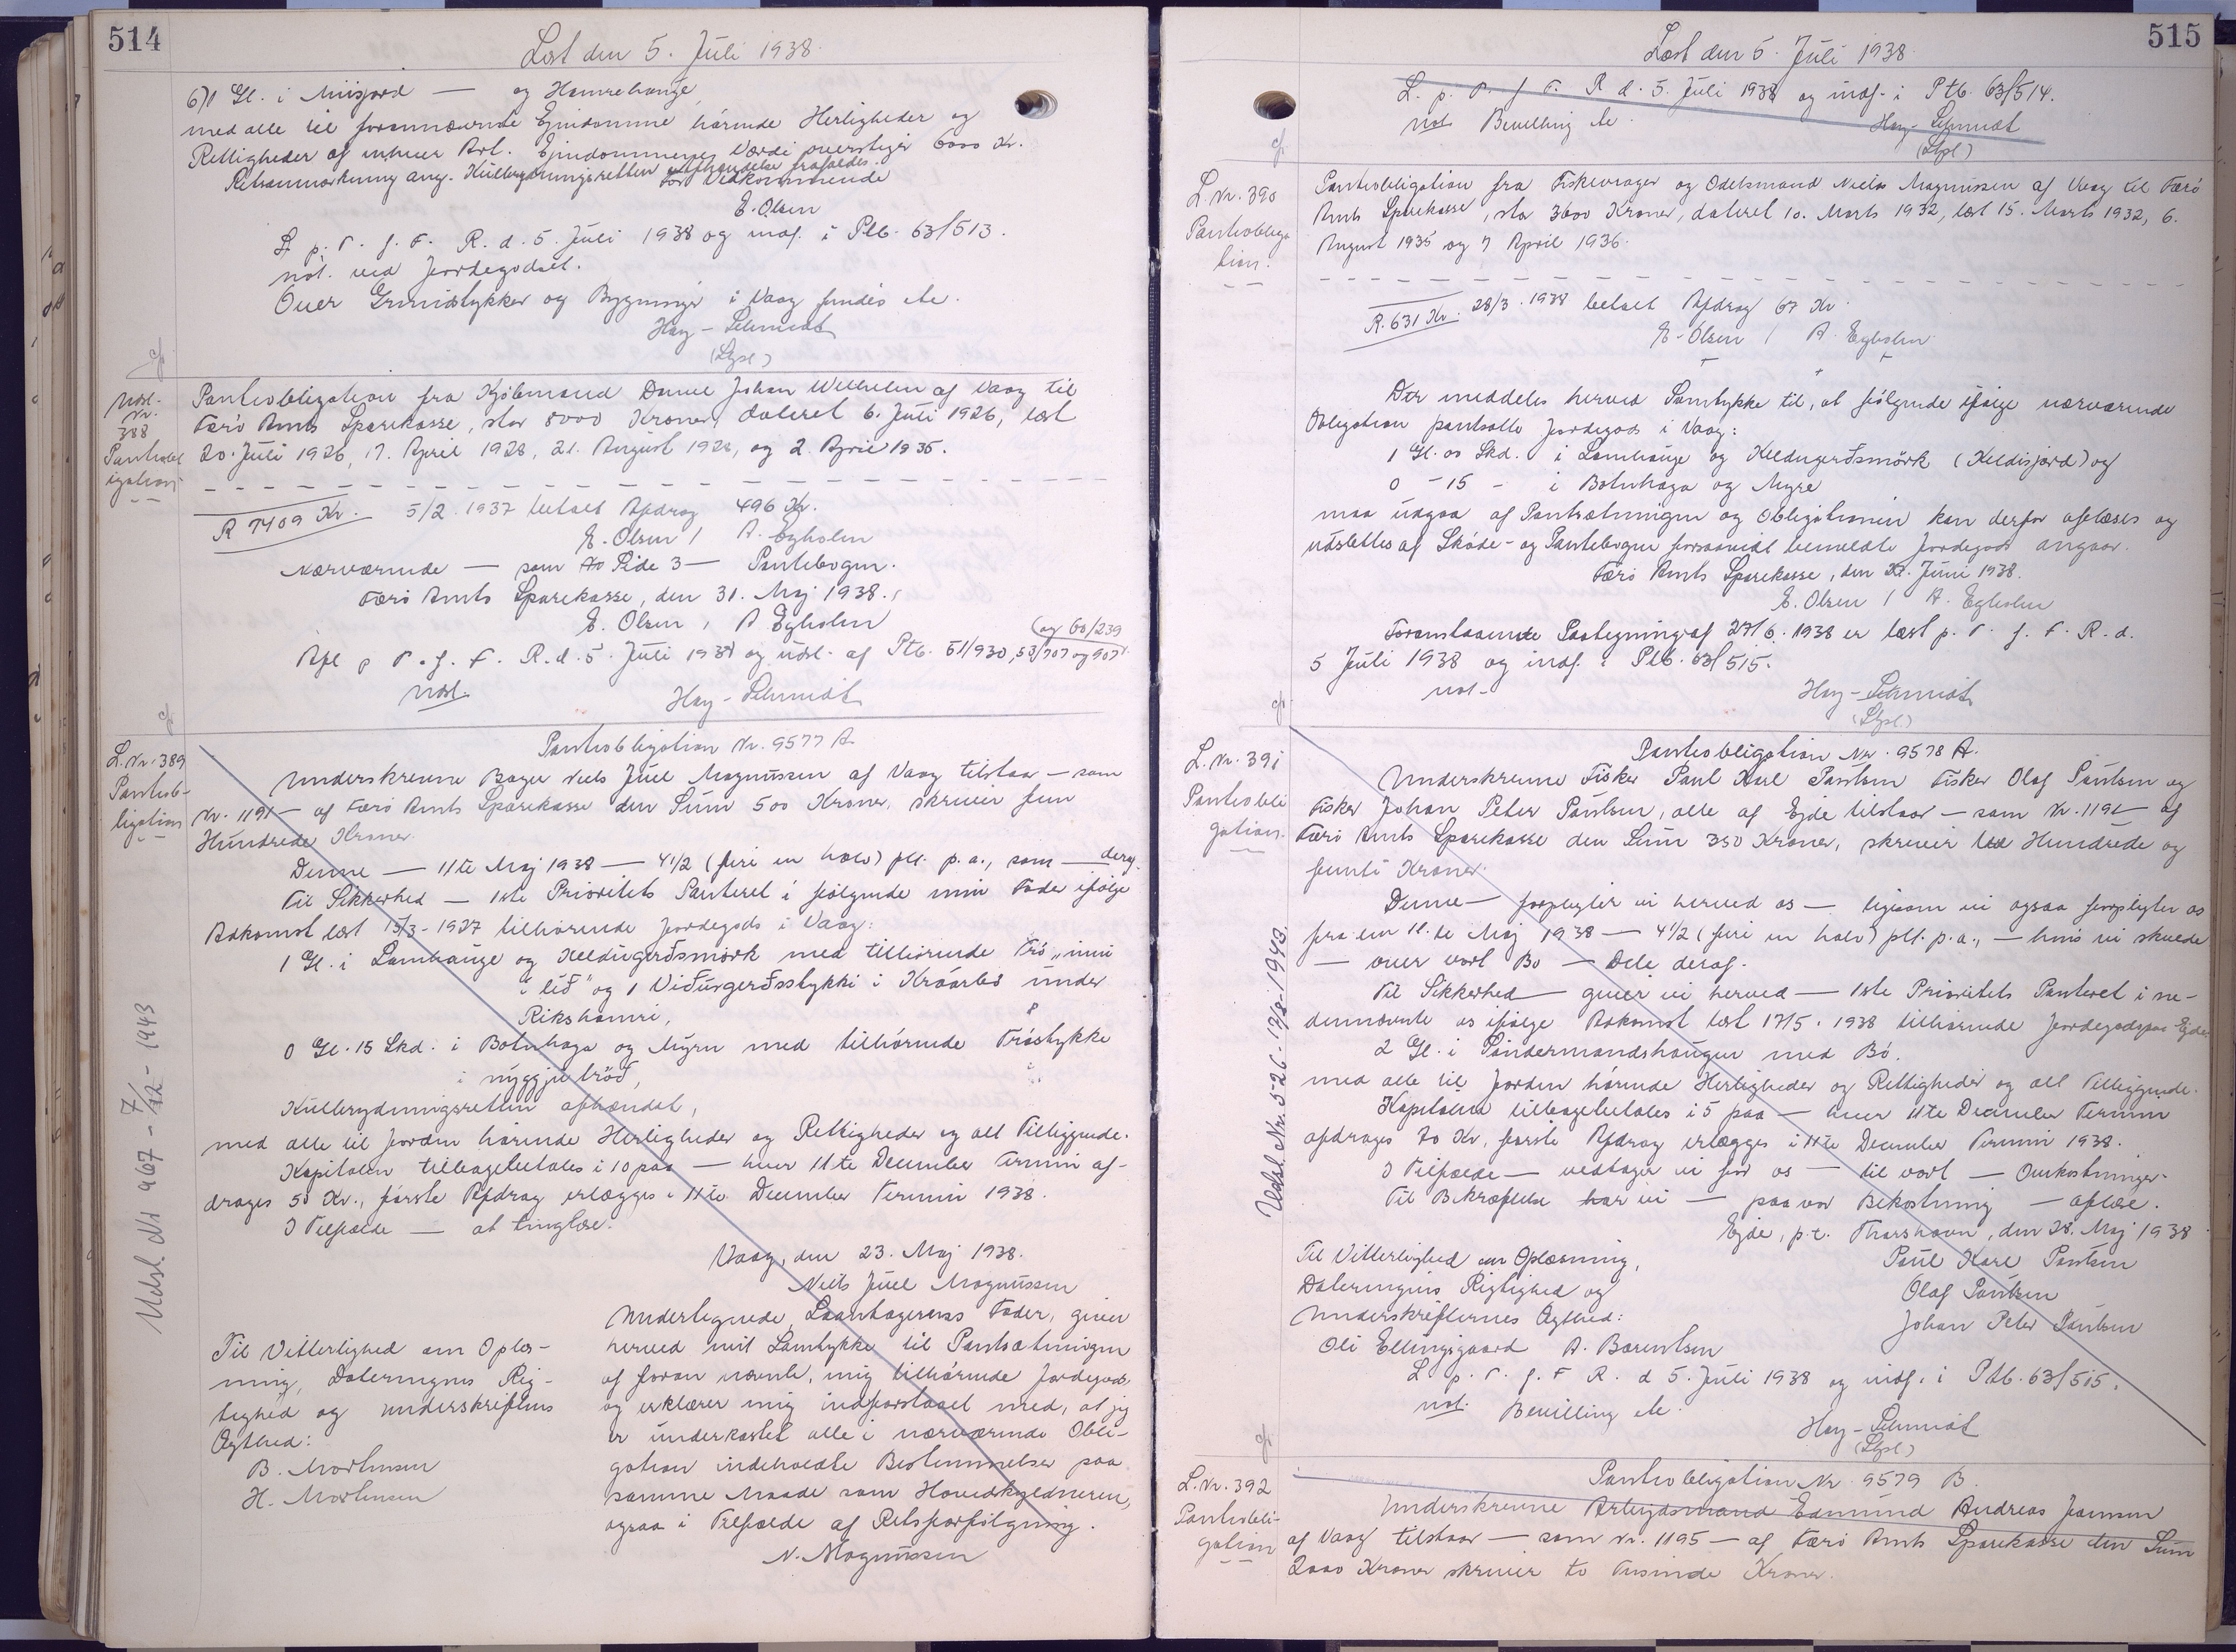 514
Læst den 5. Juli 1938.
6/1 Gl. i Miisjord — og Hamrehauge
med alle til forannævnte Ejendomme hørende Herligheder og
Rettigheder af enhver Art. Ejendommenes Værdi overstiger 6000 Kr.
Retsanmærkning ang. Kulbrydningsretten afhændelse frafaldes.
For Vedkommende
E. Olsen
L. p. V. f. F. R. d. 5. Juli 1938 og indf. i Ptb. 63/513.
not. ved Jordegodset.
Over Grundstykker og Bygninger i Vaag findes ete.
Hay-Schmidt
(Stpl)
cf.
Udsl.
Nr.
388
Pantobl
igation
Pantobligation fra Kjøbmand Daniel Johan Wilhelm af Vaag til
Færø Amts Sparekasse, stor 8000 Kroner, dateret 6. Juli 1926, læst
20. Juli 1926, 17. April 1928, 21. August 1928, og 2. April 1935.
R 7409 Kr. 5/2. 1937 betalt Afdrag 496 Kr.
E. Olsen / A. Egholm
Nærværende — som Side 3 — Pantebogen.
Færø Amts Sparekasse, den 31. Maj 1938.
E. Olsen, A Egholm
(og 60/239
Afl p V. f. F. R. d. 5. Juli 1938 og udsl. af Ptb. 51/930, 53/707 og 907
Udsl.
Hay-Schmidt
cf.
L. Nr. 389
Pantob-
ligation
Pantobligation Nr. 9577 A.
Underskrevne Bager Niels Juel Magnussen af Vaag tilstaar — som
Nr. 1191 — af Færø Amts Sparekasse den Sum 500 Kroner, skriver fem
Hundrede Kroner.
Denne — 11te Maj 1938 — 4 1/2 (firi en halv) pCt. p. a., som — deraf.
Til Sikkerhed — 1ste Prioritets Panteret i følgende min Fader ifølge
Adkomst læst 15/3-1927 tilhørende Jordegods i Vaag:
1 Gl. i Lambauge og Keldugerðsmørk med tilhørende Trø „inni
í líð" og 1 Viðurgerðsstykki i Kráarbø under
Rikshamri,
0 Gl. 15 Skd. i Botnhaga og Myru med tilhørende Trøstykke
i nýggju tröð,
Kulbrydningsretten afhændet,
med alle til Jorden hørende Herligheder og Rettigheder og alt Tilliggende.
Kapitalen tilbagebetales i 10 paa — hver 11te December Termin af-
drages 50 Kr., første Afdrag erlægges i 11te December Termin 1938.
I Tilfælde — at tinglæse.
Vaag, den 23. Maj 1938.
Niels Juel Magnussen
Udsl. Nr 967 - 7/12 - 1943
Til Vitterlighed om Oplæs-
ning, Dateringens Rig-
tighed og Underskriftens
Ægthed:
B. Mortensen
H. Mortensen
Undertegnede, Laantagerens Fader, giver
herved mit Samtykke til Pantsætningen
af foran nævnte, mig tilhørende Jordegods
og erklærer mig indforstaaet med, at jeg
er underkastet alle i nærværende Obli-
gation indeholdte Bestemmelser paa
samme Maade som Hovedskyldneren,
ogsaa i Tilfælde af Retsforfølgning.
N. Magnussen
515
Læst den 5. Juli 1938.
L. p. V. f. F. R d. 5. Juli 1938 og indf. i Ptb. 63/514.
not. Bevilling ete.
Hay-Schmidt
(Stpl)
cf.
L. Nr. 390
Pantobliga
tion.
Pantobligation fra Fiskevrager og Odelsmand Niels Magnussen af Vaag til Færø
Amts Sparekasse, stor 3600 Kroner, dateret 10. Marts 1932, læst 15. Marts 1932, 6.
August 1935 og 7 April 1936.
R. 631 Kr. 28/3. 1938 betalt Afdrag 67 Kr.
E. Olsen / A. Egholm
Der meddeles herved Samtykke til, at følgende ifølge nærværende
Obligation pantsatte Jordegods i Vaag:
1 Gl. 00 Skd. i Lambauge og Keldugerðsmörk (Keldisjord) og
0 - 15 - i Botnhaga og Myre
maa udgaa af Pantsætningen og Obligationen kan derfor aflæses og
udslettes af Skøde- og Pantebogen forsaavidt bemeldte Jordegods angaar.
Færø Amts Sparekasse, den 27. Juni 1938.
E. Olsen / A. Egholm
Foranstaaende Paategning af 27/6. 1938 er læst p. V. f. F. R. d.
5 Juli 1938 og indf. i Ptb. 63/515.
not.
Hay-Schmidt
(Stpl.)
cf.
L. Nr. 391
Pantobli
gation.
Pantobligation Nr. 9578 A.
Underskrevne Fisker Paul Karl Poulsen Fisker Olaf Poulsen og
Fisker Johan Peter Poulsen, alle af Ejde tilstaar — som Nr. 1191 — af
Færø Amts Sparekasse den Sum 350 Kroner, skriver tre Hundrede og
femti Kroner.
Denne — forpligter vi herved os — ligesom vi ogsaa forpligter os
fra den 11.te Maj 1938 — 4 1/2 (firi en halv) pCt. p. a., — hvis vi skulde
— over vort Bo — Dele deraf.
Til Sikkerhed — giver vi herved — 1ste Prioritets Panteret i ne-
dennævnte os ifølge Adkomst læst 17/5. 1938 tilhørende Jordegods paa Ejde:
2 Gl. i Pøndermandshaugen med Bø.
med alle til Jorden hørende Herligheder og Rettigheder og alt Tilliggende.
Kapitalen tilbagebetales i 5 paa — hver 11te December Termin
afdrages 70 Kr, første Afdrag erlægges i 11te December Termin 1938.
I Tilfælde — vedtager vi for os — til vort — Omkostninger.
Til Bekræftelse har vi — paa vor Bekostning — aflæse.
Ejde, p. t. Thorshavn, den 28. Maj 1938
Udsl. Nr. 526 - 13/8. 1943.
Til Vitterlighed om Oplæsning,
Dateringens Rigtighed og
Underskrifternes Ægthed:
Oli Ellingsgaard A. Barentsen
Paul Karl Poulsen
Olaf Poulsen
Johan Peter Poulsen
L. p. V. f. F R. d 5. Juli 1938 og indf. i Ptb. 63/515.
not. Bevilling ete.
Hay-Schmidt
(Stpl.)
cf.
L. Nr. 392
Pantobli-
gation
Pantobligation Nr. 9579 B.
Underskrevne Arbejdsmand Edmund Andreas Joensen
af Vaag tilstaar — som Nr. 1195 — af Færø Amts Sparekasse den Sum
2000 Kroner skriver to Tusinde Kroner.